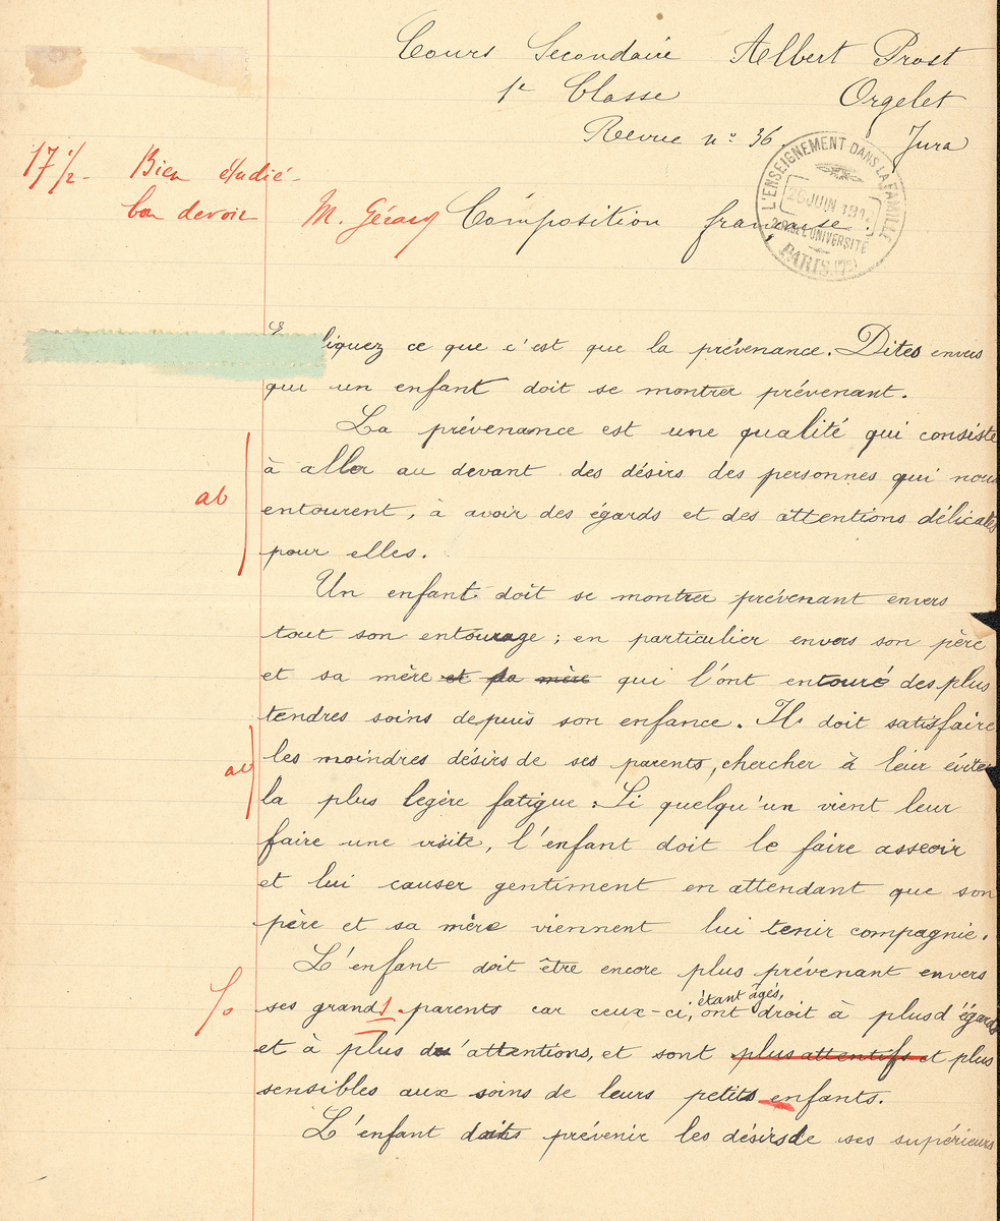 Cours Secondaire Albert Prost
1e Classe Orgelet
Revue n° 36. Jura
L'ENSEIGNEMENT DANS LA FAMILLE
26 JUIN 1912
2 RUE DE L'UNIVERSITÉ
PARIS (7e)
17 1/2 - Bien étudié -
bon devoir M. Gérary Composition française.
liquez ce que c'est que la prévenance. Dites envers
qui un enfant doit se montrer prévenant.
La prévenance est une qualité qui consiste
à aller au devant des désirs des personnes qui nous
ab
entourent, à avoir des égards et des attentions délicates
pour elles.
Un enfant doit se montrer prévenant envers
tout son entourage ; en particulier envers son père
et sa mère et sa mère qui l'ont entouré des plus
tendres soins depuis son enfance. Il doit satisfaire
les moindres désirs de ses parents, chercher à leur éviter
ab
la plus legère fatigue. Si quelqu'un vient leur
faire une visite, l'enfant doit le faire asseoir
et lui causer gentiment en attendant que son
père et sa mère viennent lui tenir compagnie.
L'enfant doit être encore plus prévenant envers
ses grands-parents car ceux-ci, étant âgés, ont droit à plus d'égards
et à plus d'attentions, et sont plus attentifs et plus
sensibles aux soins de leurs petits enfants.
L'enfant doit prévenir les désirs de ses supérieurs